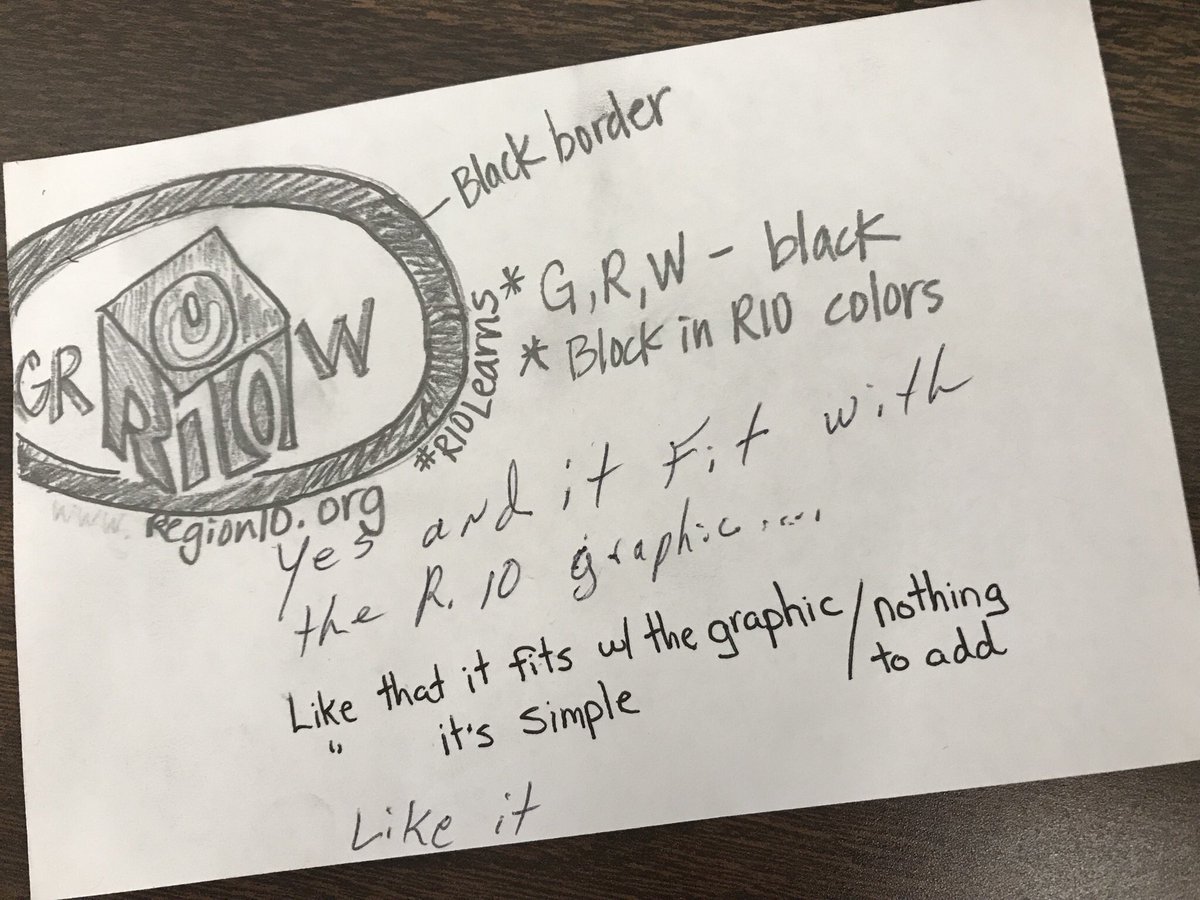 Black border
GR R10 W
#R10Learns
* G,R,W - black
* Block in R10 colors
www. Region10.org
Yes and it Fit with
the R. 10 graphic.....
Like that it fits w/ the graphic / nothing
to add
" it's simple
Like it